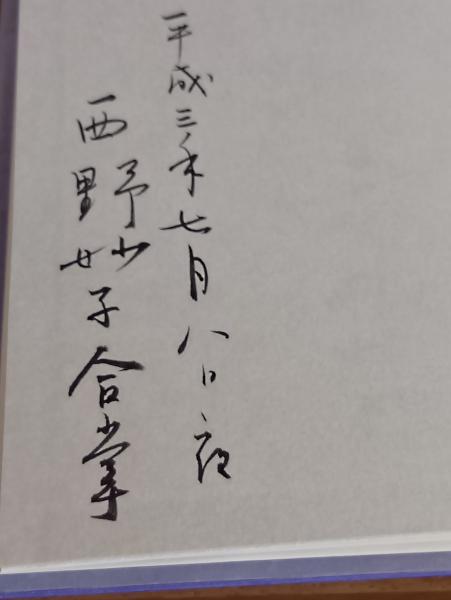 平成三年七月八日夜
西野妙子合掌